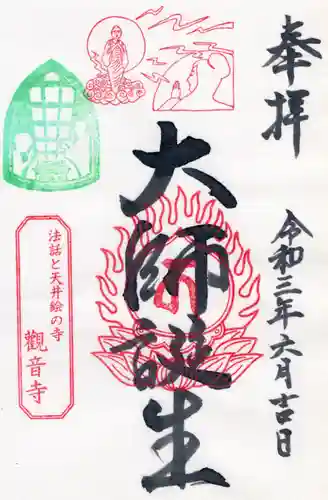 奉拝
大師誕生
令和三年六月吉日
法話と天井絵の寺
觀音寺